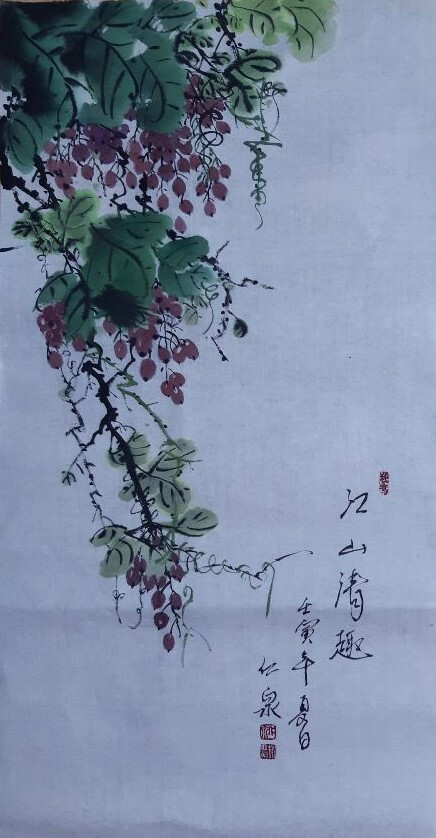 江山清趣
壬寅年夏日
仁泉